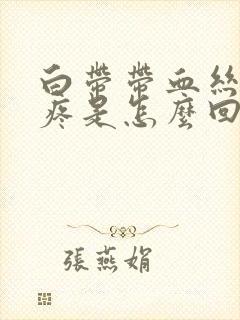 白帶帶血絲
疼是怎麼回
張燕娟